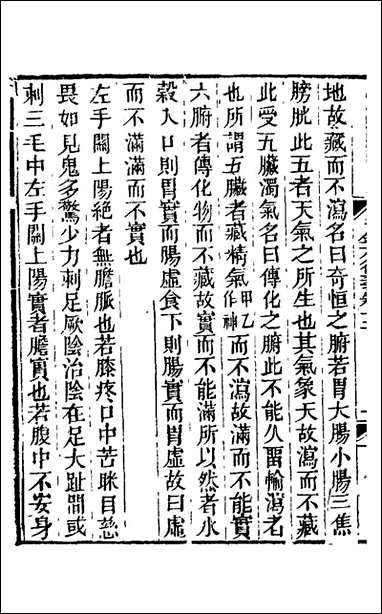 地故藏而不瀉名曰奇恒之腑若胃大腸小腸三焦
膀胱此五者天氣之所生也其氣象天故瀉而不藏
此受五臟濁氣名曰傳化之腑此不能久留輸瀉者
也所謂五臟者藏精氣甲乙作神而不瀉故滿而不能實
六腑者傳化物而不藏故實而不能滿所以然者水
穀入口則胃實而腸虛食下則腸實而胃虛故曰虛
而不滿滿而不實也
左手關上陽絕者無膽脈也若膝疼口中苦眯目悲
畏如見鬼多驚少力刺足厥陰治陰在足大趾間或
刺三毛中左手關上陽實者膽實也若腹中不安身